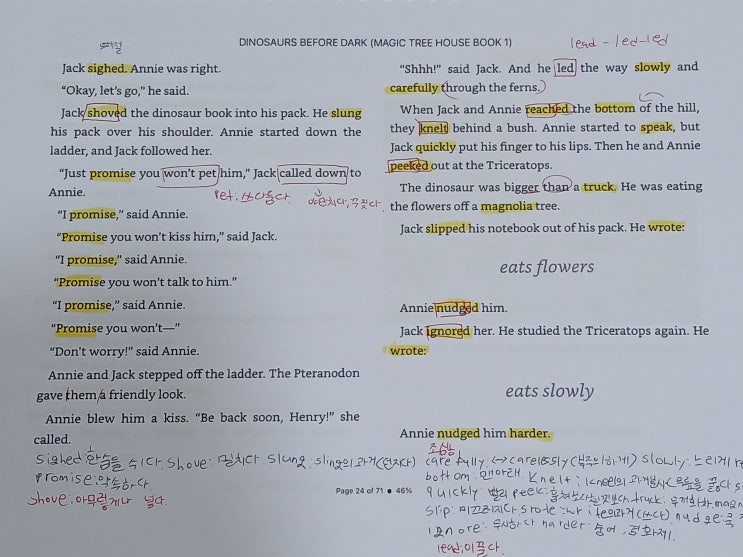 DINOSAURS BEFORE DARK (MAGIC TREE HOUSE BOOK 1)
Jack sighed. Annie was right.
"Okay, let's go," he said.
Jack shoved the dinosaur book into his pack. He slung
his pack over his shoulder. Annie started down the
ladder, and Jack followed her.
"Just promise you won't pet him," Jack called down to
Annie.
pet: 쓰다듬다.
야단치다, 꾸짖다.
"I promise," said Annie.
"Promise you won't kiss him," said Jack.
"I promise," said Annie.
"Promise you won't talk to him."
"I promise," said Annie.
"Promise you won't—"
"Don't worry!" said Annie.
Annie and Jack stepped off the ladder. The Pteranodon
gave them a friendly look.
Annie blew him a kiss. "Be back soon, Henry!" she
called.
sighed: 한숨을 쉬다. shove: 밀치다 slung: sling의 과거(던지다)
promise: 약속하다.
shove: 아무렇게나 넣다.
Page 24 of 71 • 46%
lead - led - led
"Shhh!" said Jack. And he led the way slowly and
carefully through the ferns.
When Jack and Annie reached the bottom of the hill,
they knelt behind a bush. Annie started to speak, but
Jack quickly put his finger to his lips. Then he and Annie
peeked out at the Triceratops.
The dinosaur was bigger than a truck. He was eating
the flowers off a magnolia tree.
Jack slipped his notebook out of his pack. He wrote:
eats flowers
Annie nudged him.
Jack ignored her. He studied the Triceratops again. He
wrote:
eats slowly
Annie nudged him harder.
조심히
carefully ↔ carelessly slowly: 느리게
bottom: 맨아래. knelt: kneel의
quickly: 빨리 peek: truck: 우체화차.
slip: 미끄러지다 wrote: write의과거(쓰다) nudge: 쿡
ignore: 무시하다 harder:
lead, 이끌다.